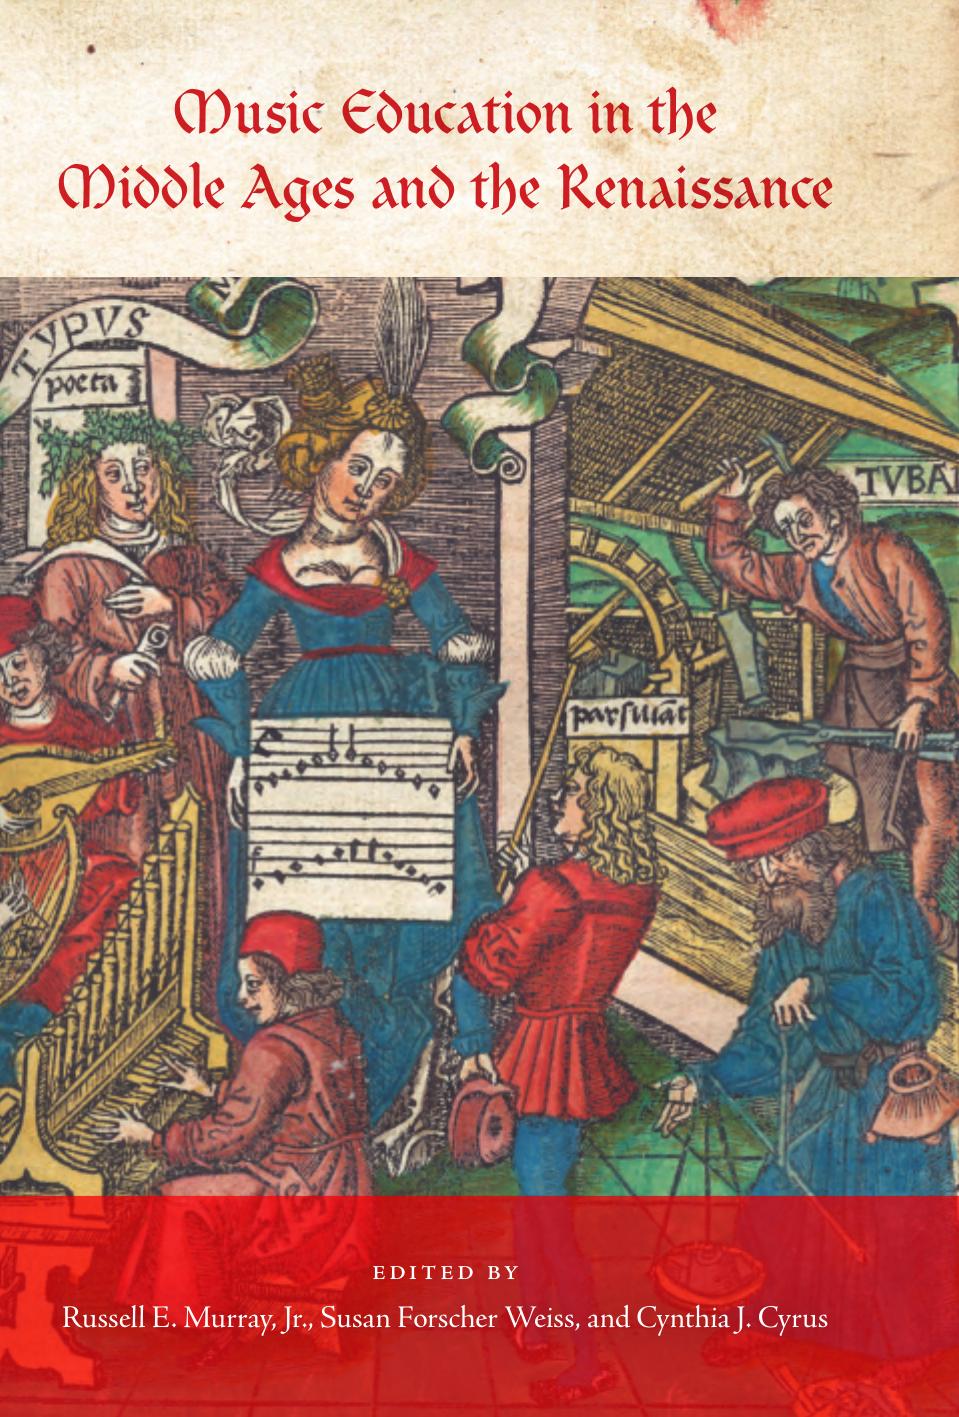 Music Education in the
Middle Ages and the Renaissance
TYPVS
M
poeta
TVBAL
EDITED BY
Russell E. Murray, Jr., Susan Forscher Weiss, and Cynthia J. Cyrus